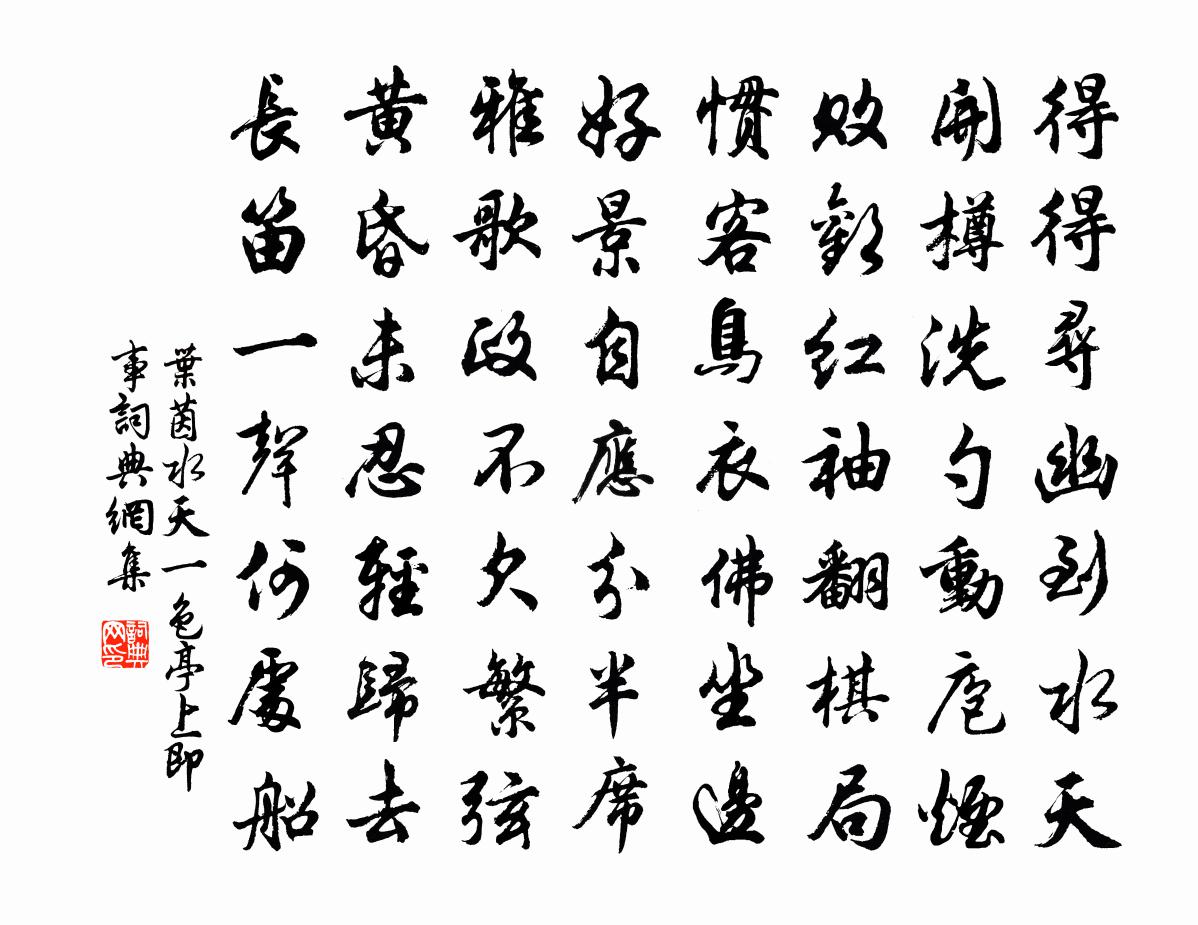 得得尋幽到水天
開樽洗勺動庖煙
敗歡紅袖翻棋局
慣客鳥衣佛坐邊
好景自應分半席
雅歌政不欠繁弦
黃昏未忍輕歸去
長笛一聲何處船
葉茵水天一色亭上即
事詞典網集
詞典
网印